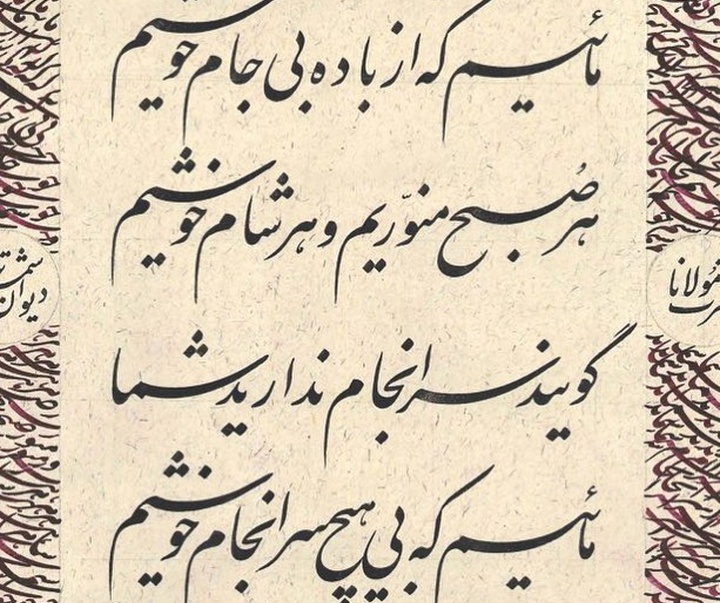 مائیم که از باده بی جام خوشیم
هر صُبح منوّریم و هر شام خوشیم
گویند سرانجام ندارید شما
مائیم که بی هیچ سرانجام خوشیم
مولانا
دیوان شمس